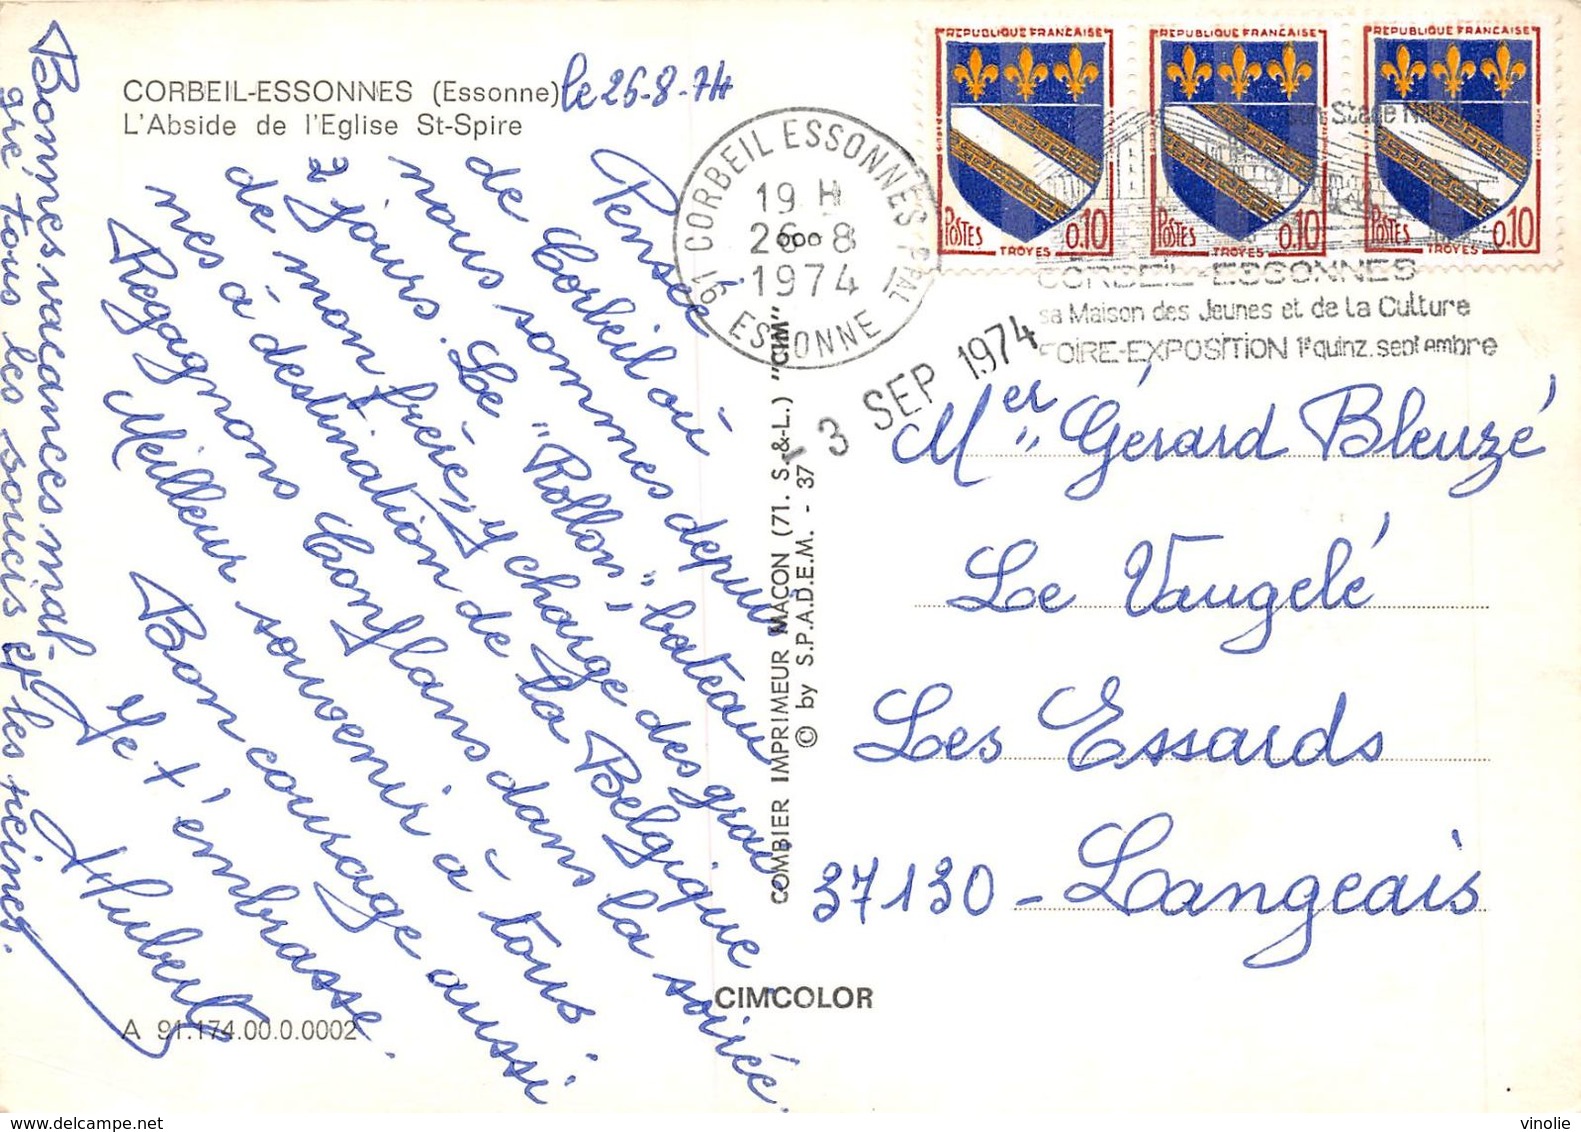 CORBEIL-ESSONNES (Essonne)
L'Abside de l'Eglise St-Spire
le 26-8-74
Pensée
de Corbeil où
nous sommes depuis
2 jours. Le "Rollon", bateau
de mon frère, y charge des grains
à destination de la Belgique
Regagnons Conflans dans la soirée.
Meilleur souvenir à tous.
Bon courage aussi
Je t'embrasse.
Hubert
Bonnes vacances mal-
gré tous les soucis et les peines.
A 91.174.00.0.0002
COMBIER IMPRIMEUR MACON (71. S.-&-L.) "CIM"
© by S.P.A.D.E.M. - 37
CIMCOLOR
REPUBLIQUE FRANCAISE
POSTES
0.10
TROYES
REPUBLIQUE FRANCAISE
POSTES
0.10
TROYES
REPUBLIQUE FRANCAISE
POSTES
0.10
TROYES
CORBEIL ESSONNES PPAL
19 H
26-8
1974
91 ESSONNE
son Stade N
CORBEIL-ESSONNES
sa Maison des Jeunes et de la Culture
FOIRE-EXPOSITION 1e quinz. septembre
- 3 SEP 1974
Mer Gérard Bleuzé
Le Vaugelé
Les Essards
37130 - Langeais
vinolie